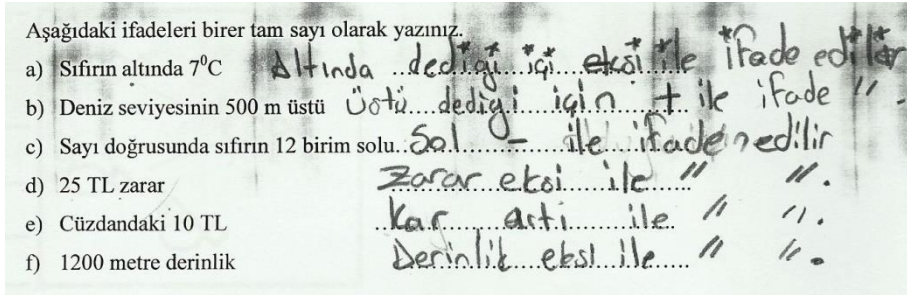 Aşağıdaki ifadeleri birer tam sayı olarak yazınız.
a) Sıfırın altında 7⁰C Altında dediği içi eksi ile ifade edilir
b) Deniz seviyesinin 500 m üstü Üstü dediyi için + ile ifade " .
c) Sayı doğrusunda sıfırın 12 birim solu. Sol - ile ifade edilir
d) 25 TL zarar Zarar eksi ile " " .
e) Cüzdandaki 10 TL Kar artı ile " " .
f) 1200 metre derinlik Derinlik eksi ile " " .